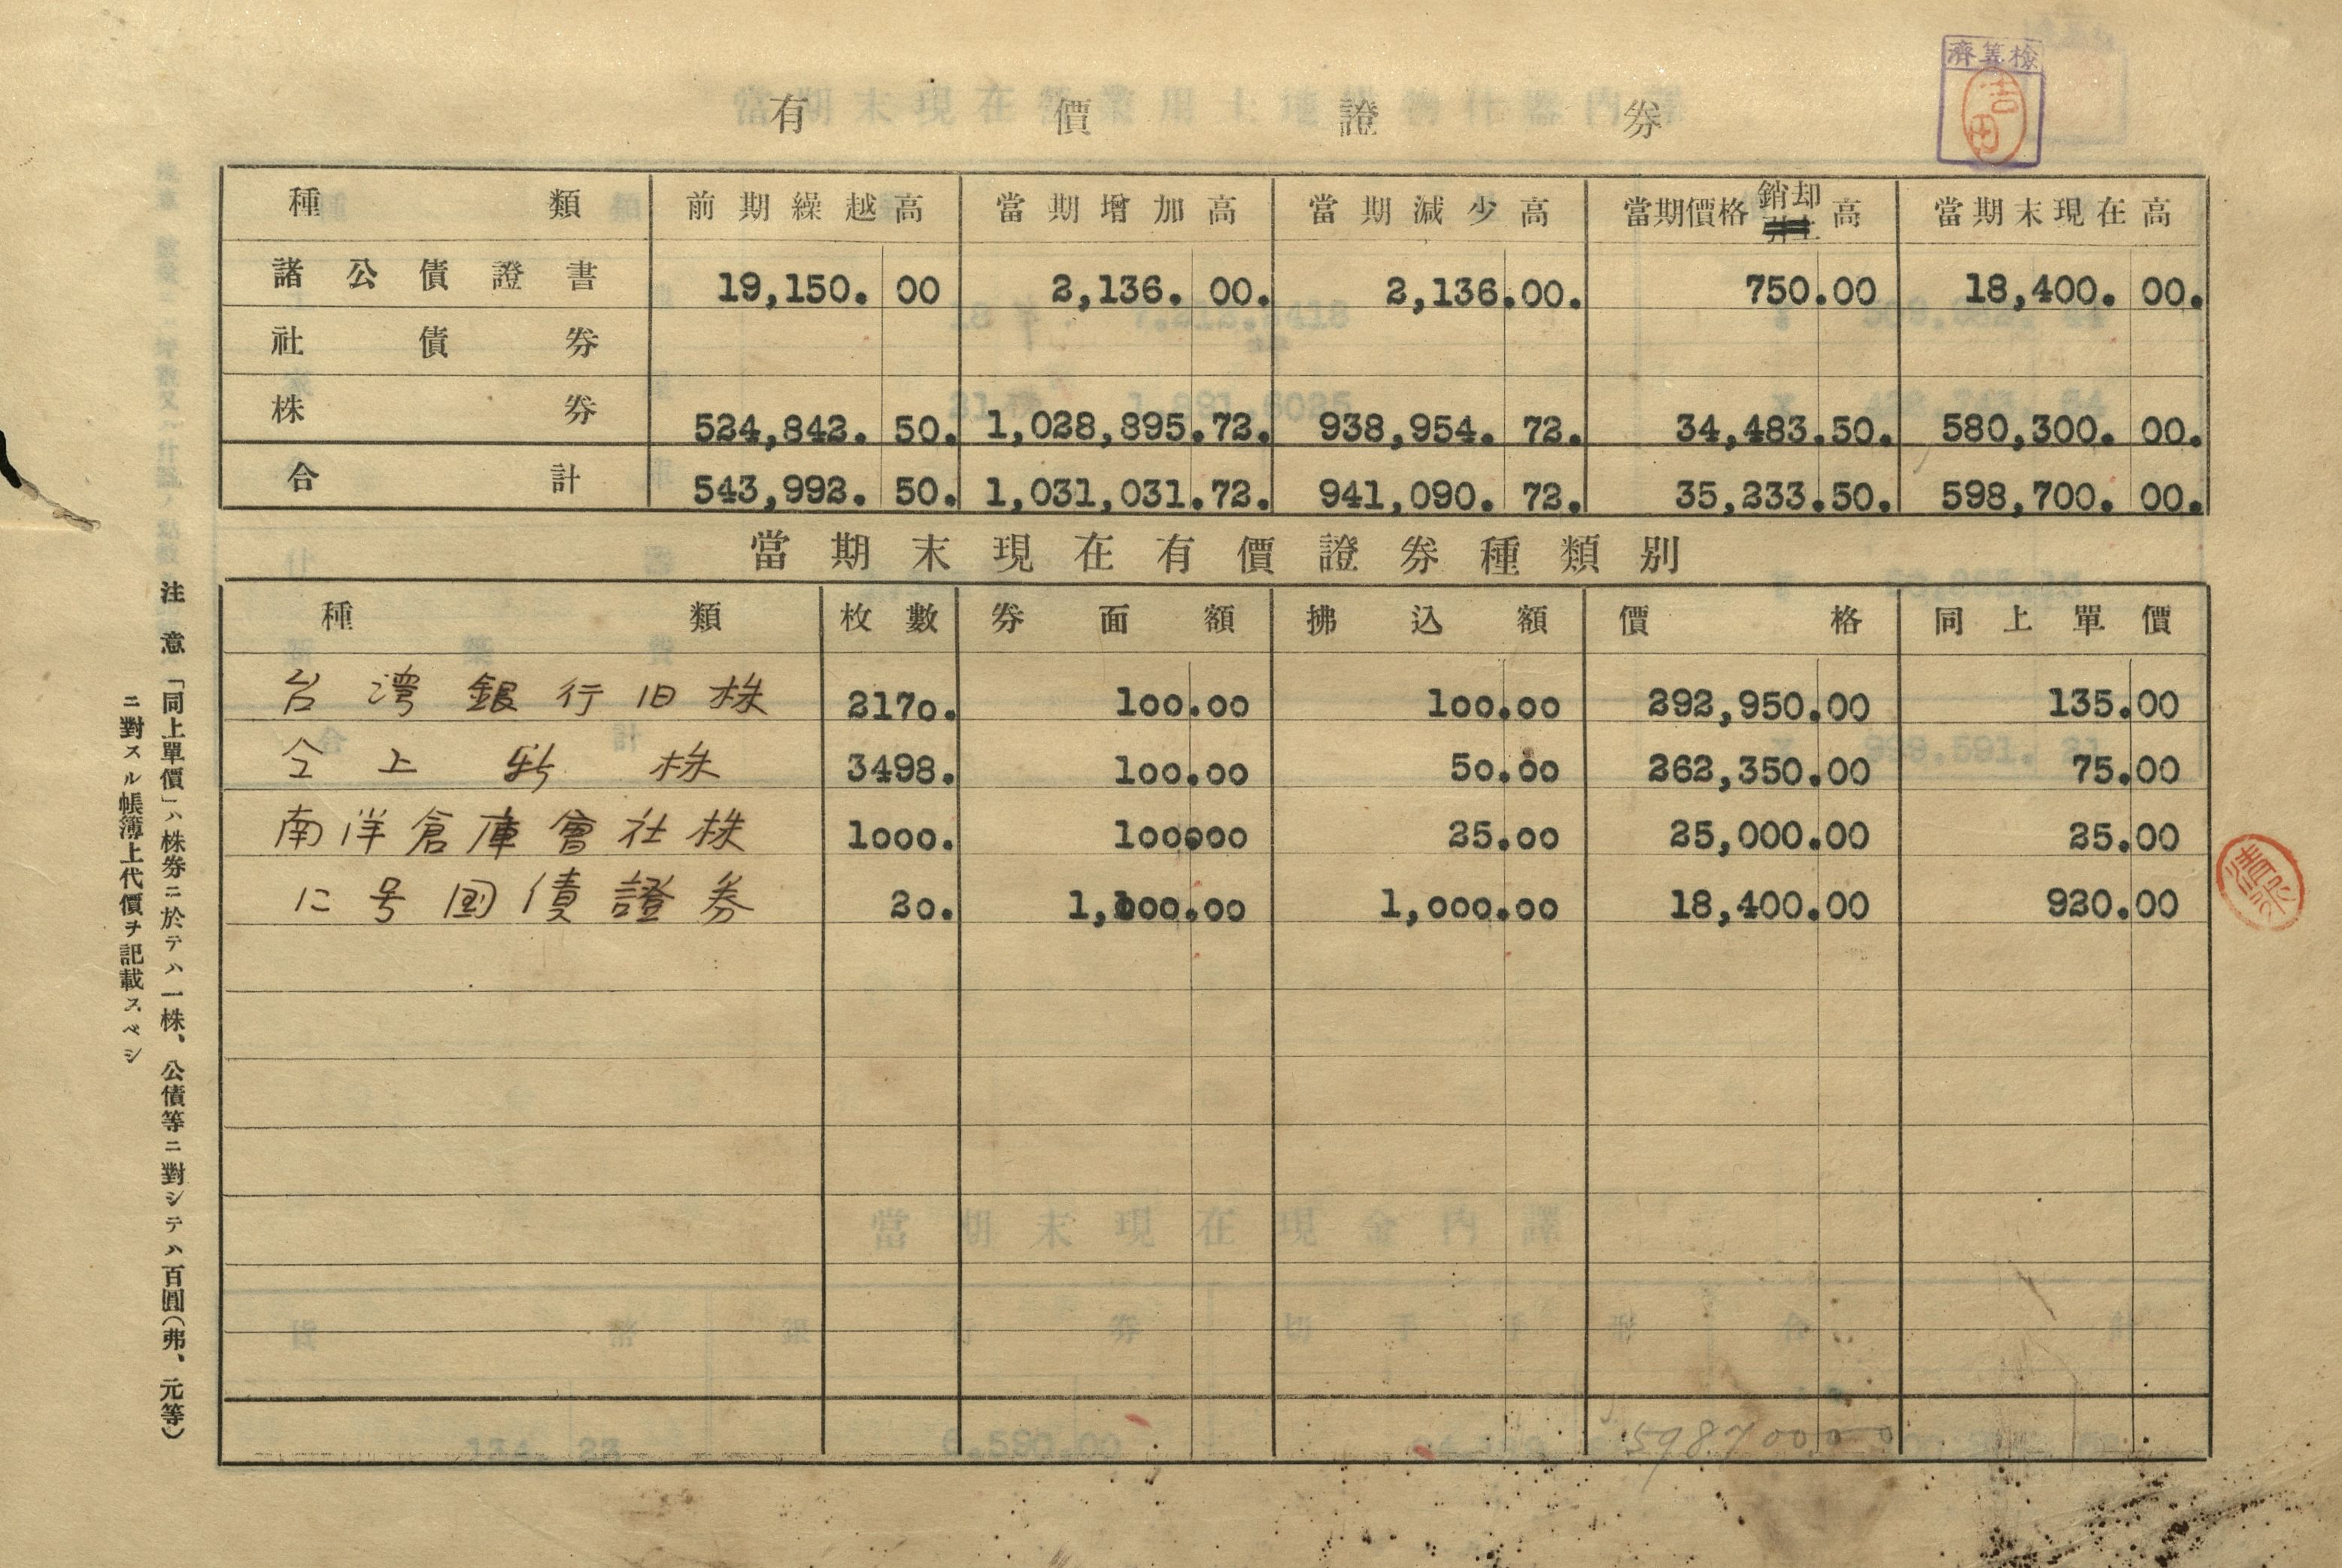 檢算濟
吉田
有價證券
種類 前期繰越高 當期增加高 當期減少高 當期價格銷却高 當期末現在高
諸公債證書 19,150.00 2,136.00. 2,136.00. 750.00 18,400.00.
社債券
株券 524,842.50. 1,028,895.72. 938,954.72. 34,483.50. 580,300.00.
合計 543,992.50. 1,031,031.72. 941,090.72. 35,233.50. 598,700.00.
當期末現在有價證券種類別
種類 枚數 券面額 拂込額 價格 同上單價
台灣銀行旧株 2170. 100.00 100.00 292,950.00 135.00
仝上新株 3498. 100.00 50.00 262,350.00 75.00
南洋倉庫會社株 1000. 100.00 25.00 25,000.00 25.00
に号国債證券 20. 1,000.00 1,000.00 18,400.00 920.00
59870000
注意「同上單價」ハ株券ニ於テハ一株、公債等ニ對シテハ百圓(弗、元等)
ニ對スル帳簿上代價ヲ記載スベシ